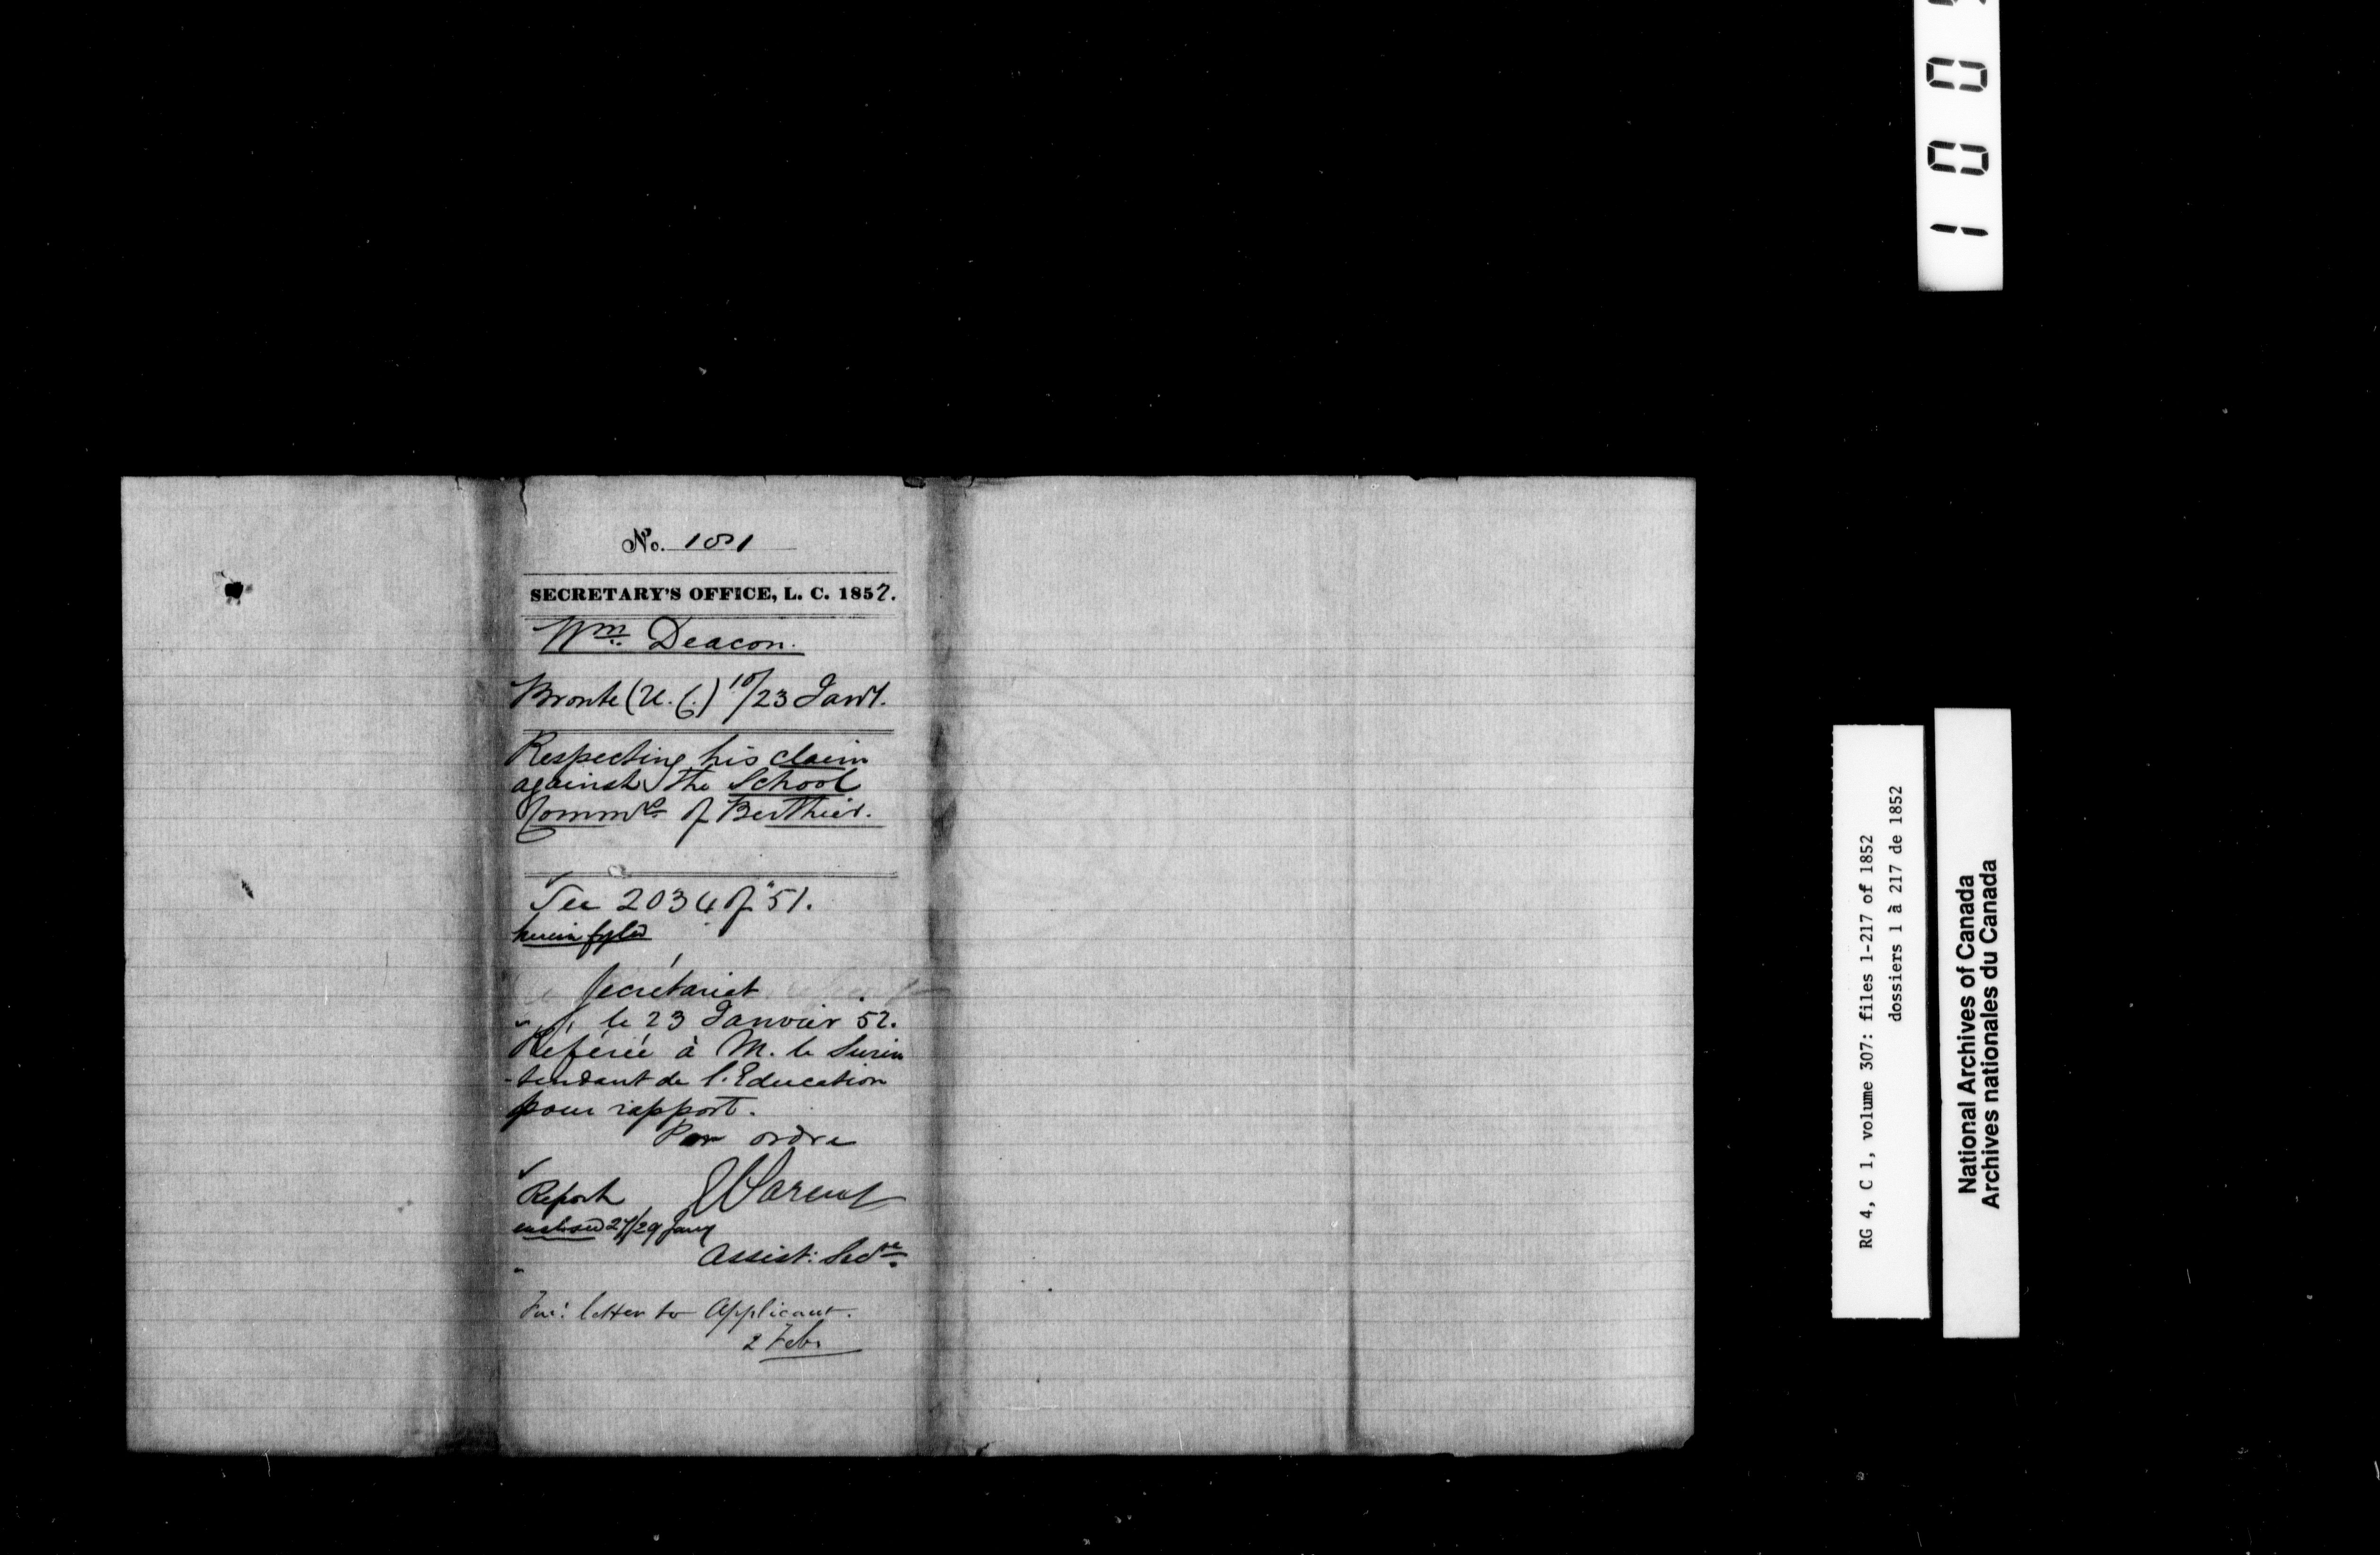 No. 101
SECRETARY'S OFFICE, L. C. 1852.
Wm. Deacon.
Bronte (U. C.) 10/23 Jany.
Respecting his claim
against the School
Commrs of Berthier.
See 2034 of "51.
herein fyled
Secrétariat
le 23 Janvier 52.
Référée à M. le Surin
-tendant de l'Education
pour rapport.
Par ordre
Report
enclosed 27/29 Jany
E Parent
Assist: Secre.
letter to Applicant.
2 Feb.
1 0 0
RG 4, C 1, volume 307: files 1-217 of 1852
dossiers 1 à 217 de 1852
National Archives of Canada
Archives nationales du Canada